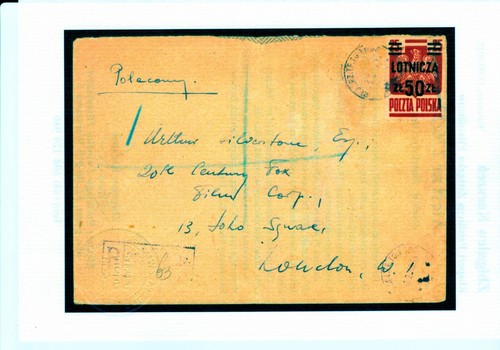 Polecony.
LOTNICZA
ZŁ 50 ZŁ
POCZTA POLSKA
Arthur Silverstone, Esq.,
20th Century Fox
Film Corp.,
13, Soho Square,
London, W. 1.